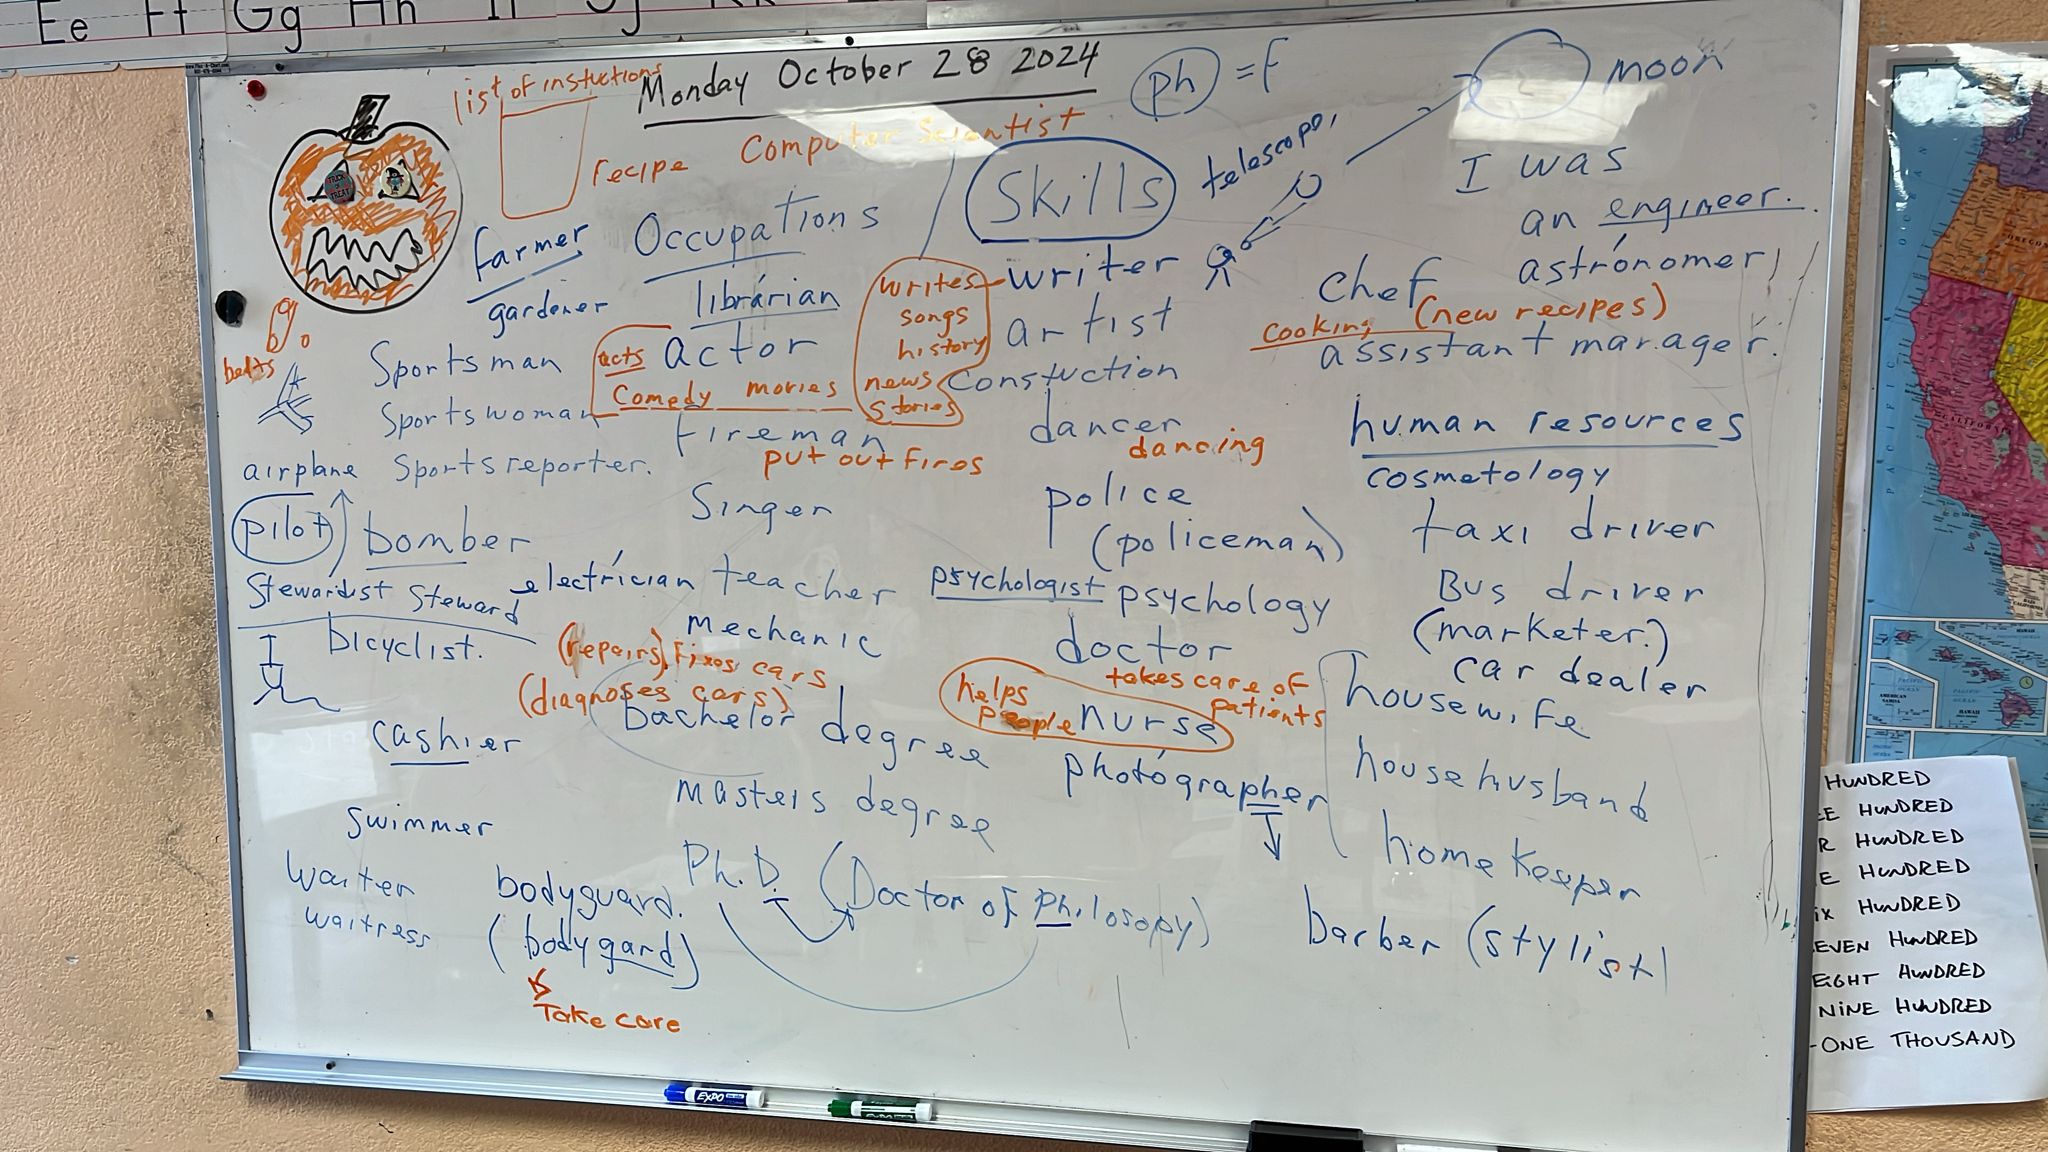 Ee Ff Gg Hh
Monday October 28 2024
list of instuctions
recipe
Computer Scientist
ph = F
moon
telescope,
Skills
I was
an engineer.
astrónomer
TRICK OR TREAT
farmer
gardener
Occupations
librárian
writes
songs
history
news
stories
writer
artist
constuction
dancer
dancing
chef
(new recipes)
cooking
assistant manager.
belts
Sportsman
Sportswoman
Sportsreporter.
acts actor
Comedy movies
fireman
put out fires
human resources
cosmetology
airplane
pilot
bomber
Singer
police
(policeman)
taxi driver
Stewardist Steward
electrícian
teacher
psychologist psychology
Bus driver
(marketer.)
bicyclist.
mechanic
(repairs) Fixes cars
(diagnoses cars)
doctor
takes care of
patients
helps
people nurse
car dealer
housewife
househusband
homekeeper
cashier
bachelor degree
photógrapher
masters degree
swimmer
waiter
waitress
bodyguard.
(bodygard)
Take care
Ph.D. (Doctor of Philosopy)
barber (stylist)
EXPO
OREGON
CALIFORNIA
PACIFIC
HAWAII
HUNDRED
HUNDRED
HUNDRED
HUNDRED
HUNDRED
EVEN HUNDRED
EIGHT HUNDRED
NINE HUNDRED
-ONE THOUSAND